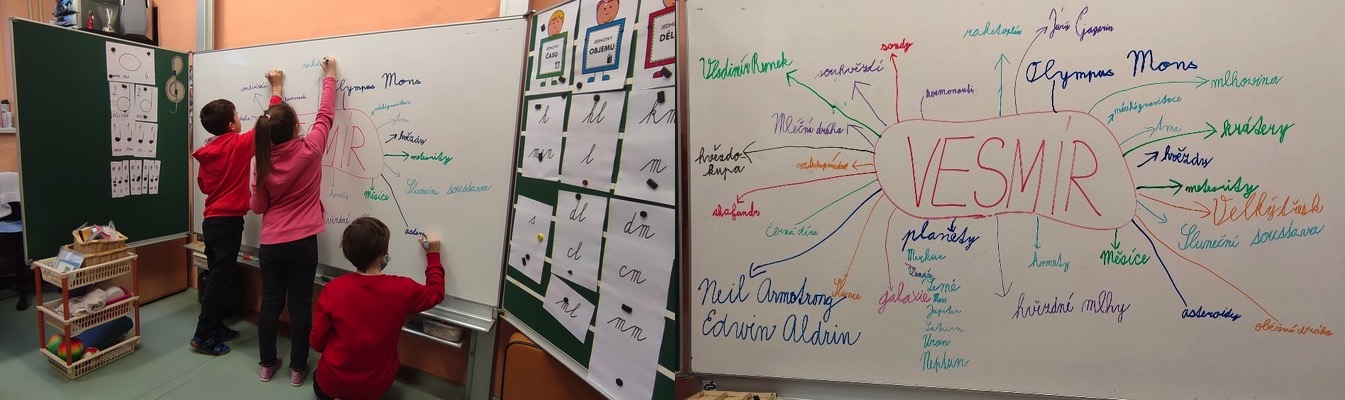 JEDNOTKY
ČASU
JEDNOTKY
OBJEMU
h
hl
km
min
l
m
s
dl
dm
cl
cm
ml
mm
Olympus Mons
hvězdy
meteority
Sluneční soustava
VESMÍR
Měsíce
Vladimír Remek
souhvězdí
sondy
raketoplán
Jurij Gagarin
Olympus Mons
mlhovina
kosmonauti
Mléčná dráha
krátery
hvězdo-
kupa
hvězdy
VESMÍR
meteority
skafandr
Velký třesk
černá díra
Sluneční soustava
planety
Merkur
Venuše
Země
Mars
Jupiter
Saturn
Uran
Neptun
komety
Měsíce
Neil Armstrong
Edwin Aldrin
Slunce
galaxie
hvězdné mlhy
asteroidy
oběžná dráha